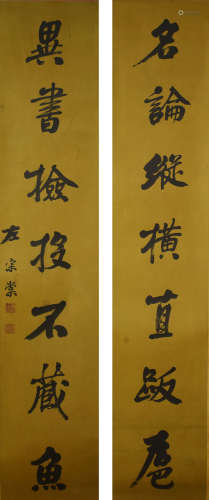 名論縱橫直跋扈
異書撿投不藏魚
左宗棠